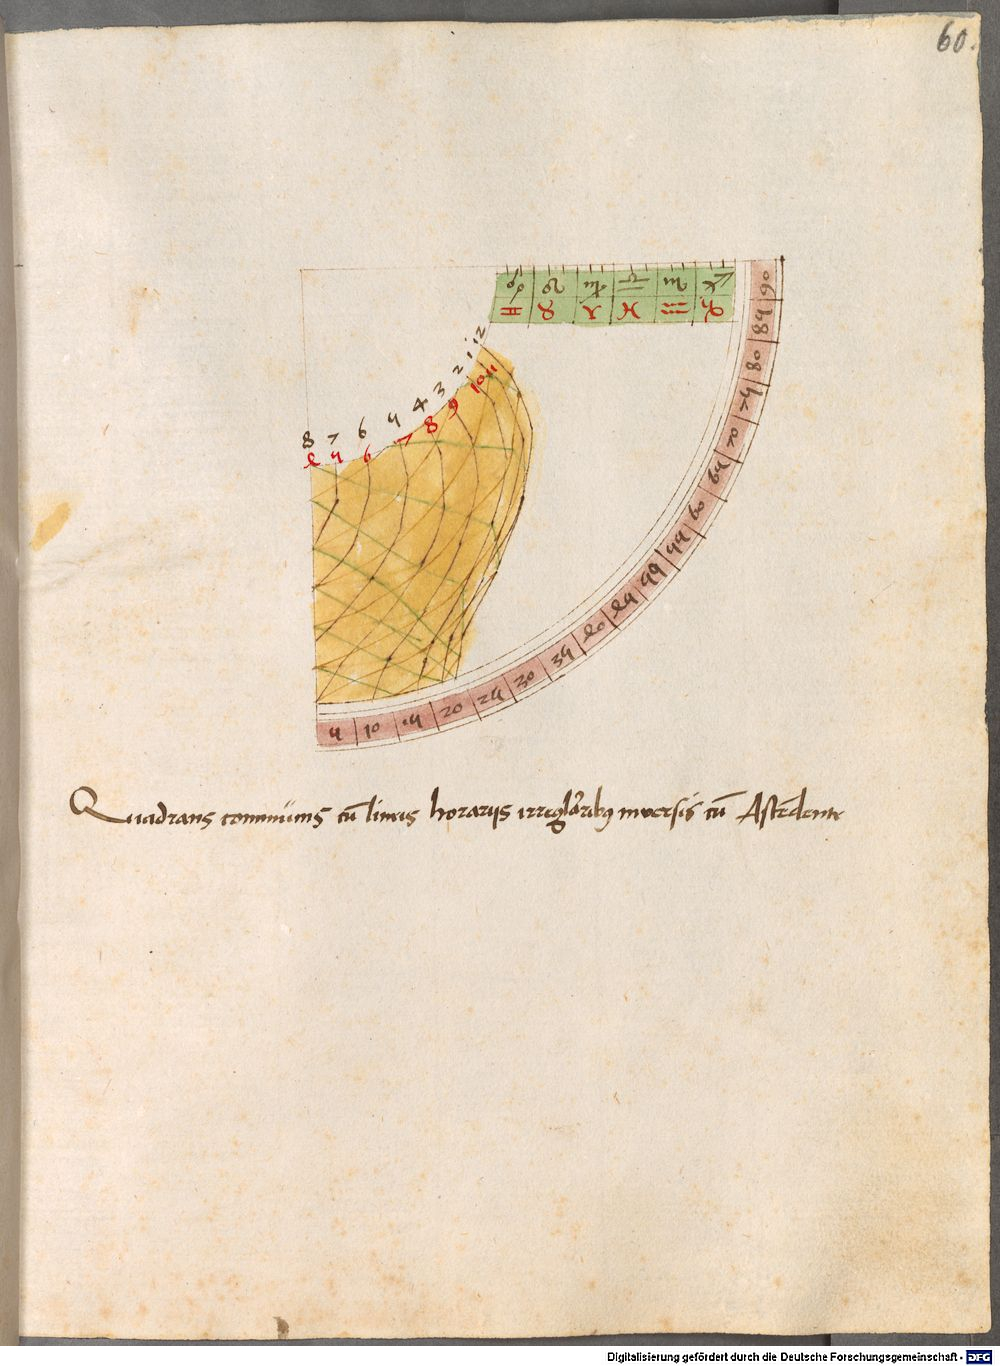 60.
♋ ♌ ♍ ♎ ♏ ♐
♊ ♉ ♈ ♓ ♒ ♑
8 7 6 5 4 3 2 1 12
4 5 6 7 8 9 10 11
5 10 15 20 25 30 35 40 45 50 55 60 65 70 75 80 85 90
Quadrans communis cū lineis horarijs irreglaribꝯ inversis cū Ascēdente
Digitalisierung gefördert durch die Deutsche Forschungsgemeinschaft - DFG